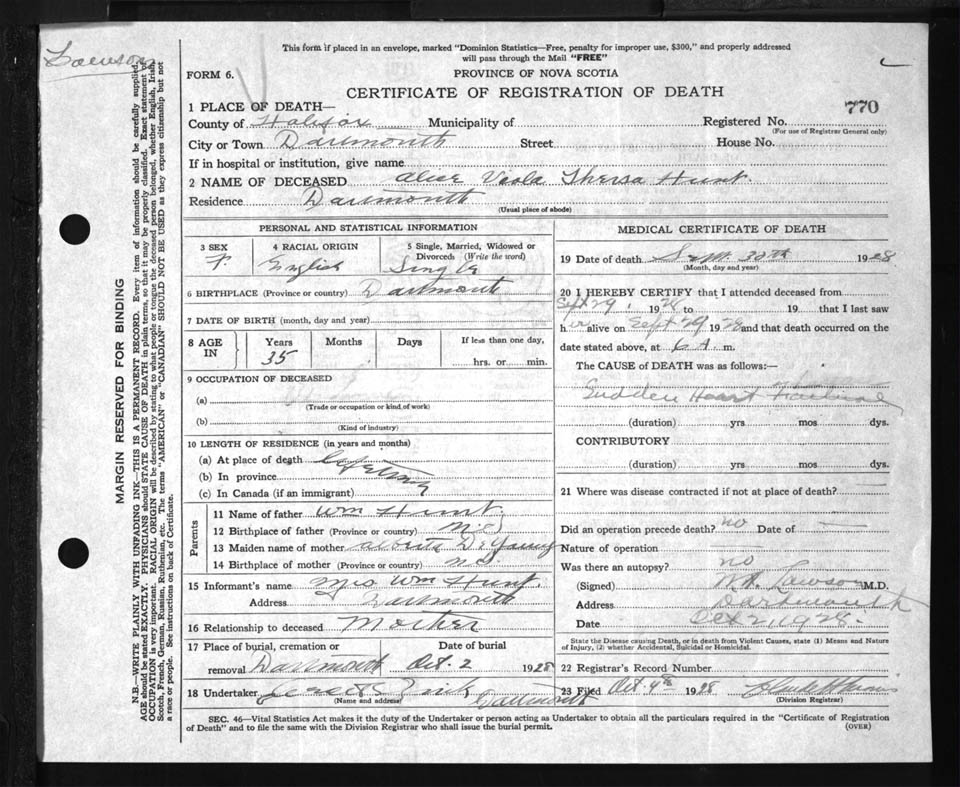 Lawson
This form if placed in an envelope, marked "Dominion Statistics—Free, penalty for improper use, $300," and properly addressed
will pass through the Mail "FREE"
FORM 6.
PROVINCE OF NOVA SCOTIA
CERTIFICATE OF REGISTRATION OF DEATH
770
1 PLACE OF DEATH—
County of Halifax Municipality of Registered No.
(For use of Registrar General only)
City or Town Dartmouth Street House No.
If in hospital or institution, give name
2 NAME OF DECEASED Alice Veola Thersa Hunt.
Residence Dartmouth
(Usual place of abode)
PERSONAL AND STATISTICAL INFORMATION
3 SEX F. 4 RACIAL ORIGIN English 5 Single, Married, Widowed or Divorced: (Write the word) Single
6 BIRTHPLACE (Province or country) Dartmouth
7 DATE OF BIRTH (month, day and year)
8 AGE IN Years Months Days If less than one day,
35 hrs. or min.
9 OCCUPATION OF DECEASED
(a)
(Trade or occupation or kind of work)
(b)
(Kind of industry)
10 LENGTH OF RESIDENCE (in years and months)
(a) At place of death lifetime
(b) In province
(c) In Canada (if an immigrant)
Parents
11 Name of father Wm Hunt.
12 Birthplace of father (Province or country)
13 Maiden name of mother Alberta DeYoung
14 Birthplace of mother (Province or country) N.S.
15 Informant's name Mrs Wm Hunt.
Address Dartmouth
16 Relationship to deceased Mother
17 Place of burial, cremation or Date of burial
removal Dartmouth Oct. 2 1928
18 Undertaker Dartmouth
(Name and address)
MEDICAL CERTIFICATE OF DEATH
19 Date of death Sept. 30th 1928
(Month, day and year)
20 I HEREBY CERTIFY that I attended deceased from
Sept 29, 1928 to 19 that I last saw
her alive on Sept 29 1928 and that death occurred on the
date stated above, at 6 A. m.
The CAUSE of DEATH was as follows:—
Sudden Heart Failure
(duration) yrs mos dys.
CONTRIBUTORY
(duration) yrs mos dys.
21 Where was disease contracted if not at place of death?
Did an operation precede death? no Date of —
Nature of operation
Was there an autopsy? no
(Signed) Lawson M.D.
Address Dartmouth
Date Oct 2, 1928.
State the Disease causing Death, or in death from Violent Causes, state (1) Means and Nature
of Injury, (2) whether Accidental, Suicidal or Homicidal.
22 Registrar's Record Number
23 Filed Oct. 4th 1928
(Division Registrar)
SEC. 46—Vital Statistics Act makes it the duty of the Undertaker or person acting as Undertaker to obtain all the particulars required in the "Certificate of Registration
of Death" and to file the same with the Division Registrar who shall issue the burial permit.
(OVER)
MARGIN RESERVED FOR BINDING
N.B.—WRITE PLAINLY WITH UNFADING INK—THIS IS A PERMANENT RECORD. Every item of information should be carefully supplied.
AGE should be stated EXACTLY. PHYSICIANS should STATE CAUSE OF DEATH in plain terms, so that it may be properly classified. Exact statement of
OCCUPATION is very important. RACIAL ORIGIN will be described by stating to what people or tongue the deceased person belonged, whether English, Irish,
Scotch, French, German, Russian, Ruthenian, etc. The terms "AMERICAN" or "CANADIAN" SHOULD NOT BE USED as they express citizenship but not
a race or people. See instructions on back of Certificate.